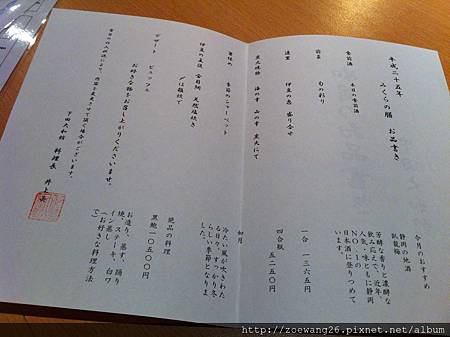 平成二十五年
ふくらの膳 お品書き
食前酒
本日の食前酒
前菜
旬の彩り
造里
伊豆の恵 盛り合せ
炭火焼物 海の幸 山の幸 炭火にて
箸休め
季節のシャーベット
伊豆の玉箱 金目鯛 天然塩焼き
〆は麺始て
お好きな物をお召し上がりくださいませ。
デザート ビュッフェ
下田大和館 料理長 井上
今月のおすすめ
静岡の地酒
臥龍梅
芳醇な香りと濃醇な
飲み応えで、近年、
人気・味ともに静岡
NO.1の
日本酒に登りつめて
います。
一合 一三六五円
四合瓶 五二五〇円
如月
冷たい風が吹きわた
る日々、すっかり冬
らしい季節となりま
した。
絶品の料理
黒鮑 一〇五〇〇円
お造り、蒸す、踊り
焼、ステーキ、白ワ
イン蒸し
(お好きな料理方法
で)
http://zoewang26.pixnet.net/album